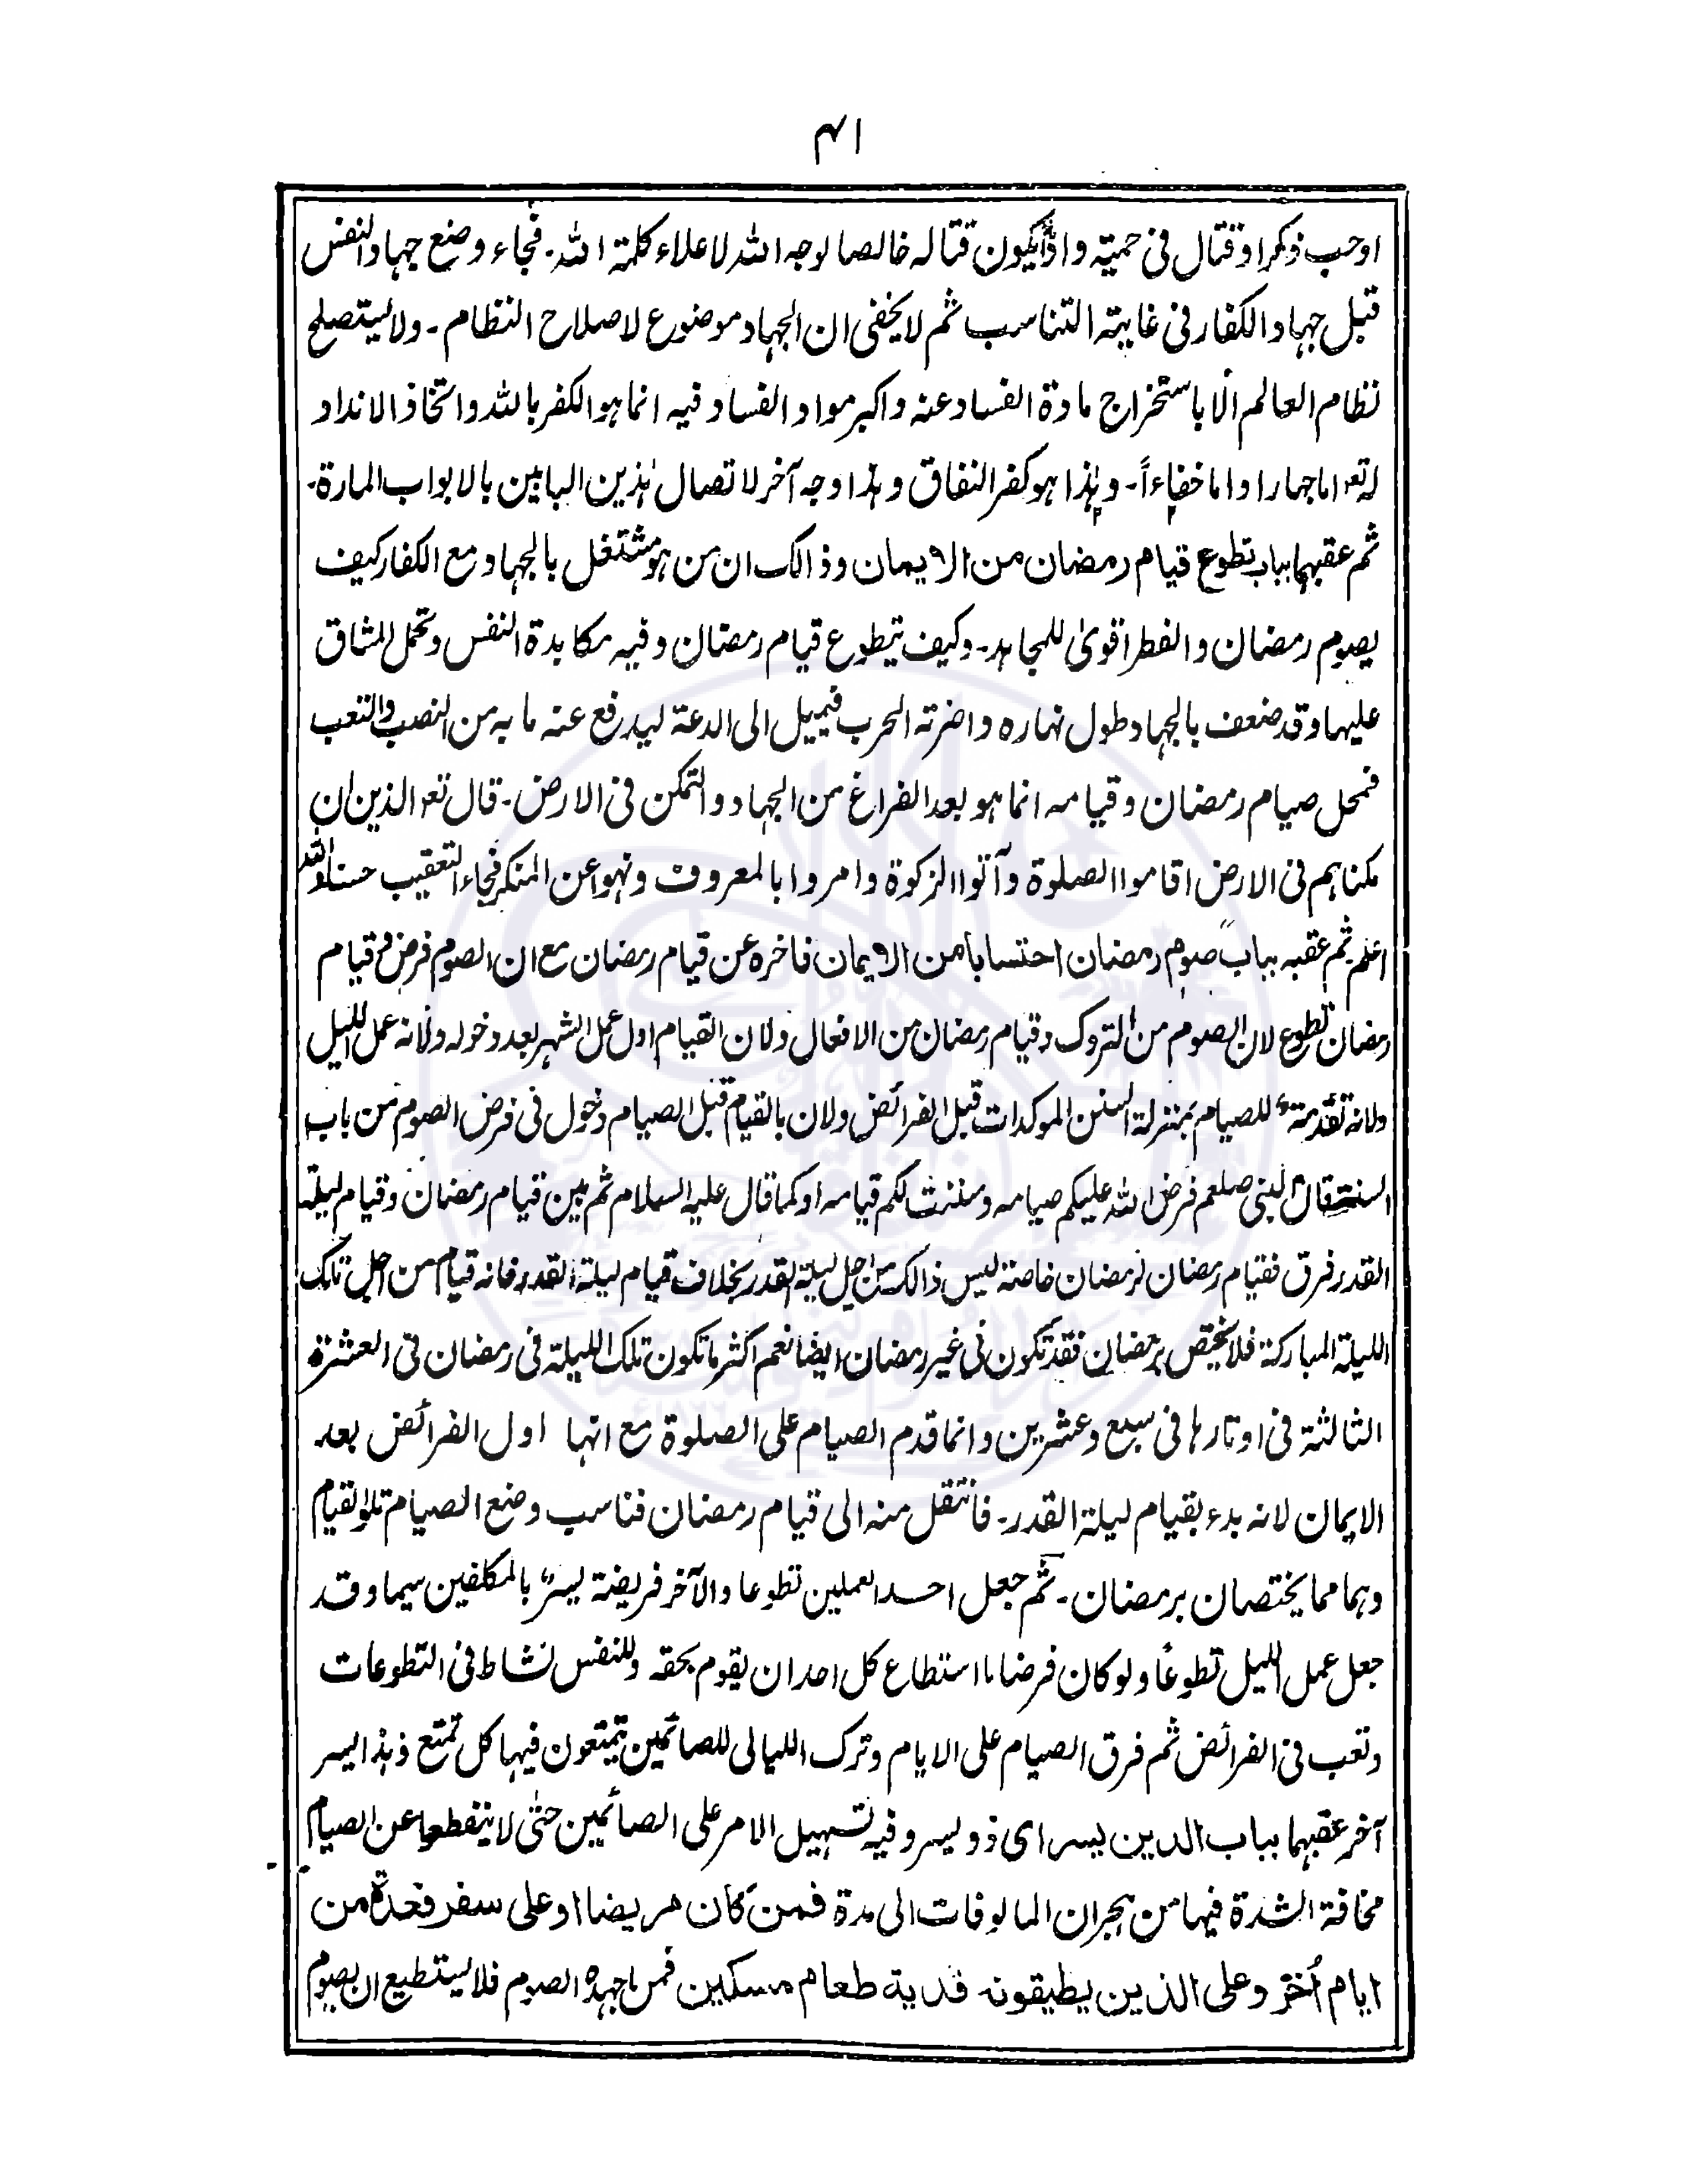 ٤١
اوحب ذكرا وقتال فى حمية واذا يكون قتاله خالصا لوجه الله لاعلاء كلمة الله۔ فجاء وضع جهاد النفس
قبل جهاد الكفار فى غاية التناسب ثم لا يخفى ان الجهاد موضوع لاصلاح النظام۔ ولا يستصلح
نظام العالم الا باستخراج مادة الفساد عنه واكبر مواد الفساد فيه انما هو الكفر بالله واتخاذ الانداد
له تعہ اما جهارا واما خفاءاً۔ وهذا هو كفر النفاق وهذا وجه آخر لاتصال هذين البابين بالابواب المارة۔
ثم عقبهما بباب تطوع قيام رمضان من الايمان وذالك ان من هو مشتغل بالجهاد مع الكفار كيف
يصوم رمضان والفطر اقوىٰ للمجاهد۔ وكيف يتطوع قيام رمضان وفيه مكابدة النفس وتحمل المشاق
عليها وقد ضعف بالجهاد طول نهاره واضرته الحرب فيميل الى الدعة ليدفع عنه ما به من النصب والتعب
فمحل صيام رمضان وقيامه انما هو بعد الفراغ من الجهاد والتمكن فى الارض۔ قال تعہ الذين ان
مكناهم فى الارض اقاموا الصلوة وآتوا الزكوة وامروا بالمعروف ونهوا عن المنكر فجاء التعقيب حسنا والله
اعلم ثم عقبه بباب صوم رمضان احتسابا من الايمان فاخره عن قيام رمضان مع ان الصوم فرض وقيام
رمضان تطوع لان الصوم من التروك وقيام رمضان من الافعال ولان القيام اول عمل الشهر بعد دخوله ولانه عمل الليل
ولانه تقدمة للصيام بمنزلة السنن الموكدات قبل الفرائض ولان بالقيام قبل الصيام دخول فى فرض الصوم من باب
السنة قال النبى صلعم فرض الله عليكم صيامه وسننت لكم قيامه او كما قال عليه السلام ثم بين قيام رمضان وقيام ليلة
القدر فرق فقيام رمضان لرمضان خاصة ليس ذالك من اجل ليلة القدر بخلاف قيام ليلة القدر فانه قيام من اجل تلك
الليلة المباركة فلا يختص برمضان فقد تكون فى غير رمضان ايضا نعم اكثر ما تكون تلك الليلة فى رمضان فى العشرة
الثالثة فى اوتارها فى سبع وعشرين وانما قدم الصيام على الصلوة مع انها اول الفرائض بعد
الايمان لانه بدء بقيام ليلة القدر۔ فانتقل منه الى قيام رمضان فناسب وضع الصيام تلو القيام
وهما مما يختصان برمضان۔ ثم جعل احد العملين تطوعا والآخر فريضة يسرٌ بالمكلفين سيما وقد
جعل عمل الليل تطوعًا ولو كان فرضا ما استطاع كل احد ان يقوم بحقه وللنفس نشاط فى التطوعات
وتعب فى الفرائض ثم فرق الصيام على الايام وترك الليالى للصائمين يتمتعون فيها كل تمتع وهذا يسر
آخر عقبهما بباب الدين يسر اى ذو يسر وفيه تسهيل الامر على الصائمين حتىٰ لا ينقطعوا عن الصيام
مخافة الشدة فيها من هجران المالوفات الى مدة فمن كان مريضا او على سفر فعدة من
ايام أُخَرَ وعلى الذين يطيقونه فدية طعام مسكين فمن اجهده الصوم فلا يستطيع ان يصوم